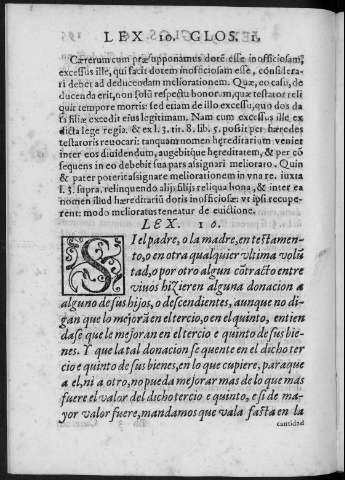 LEX 10. GLOS. 1.
Cæterum cum præsupponamus dotẽ esse inofficiosam,
excessus ille, qui facit dotem inofficiosam esse, considera-
ri debet ad deducendam meliorationem. Quæ, eo casu, de
ducenda erit, non solũ respectu bonorum, quæ testator reli
quit tempore mortis: sed etiam de illo excessu, quo dos da
ta filiæ excedit eius legitimam. Nam cum excessus ille ex
dicta lege regia. & ex l. 3. tit. 8. lib. 5. possit per hæredes
testatoris reuocari: tanquam nomen hereditarium veniet
inter eos diuidendum, augebitque hereditatem, & per cõ
sequens in eo debebit sua pars assignari meliorato. Quin
& pater poterit assignare meliorationem in vna re. iuxta
l. 3. supra. relinquendo alijs filijs reliqua bona, & inter ea
nomen illud hæreditariũ doris inofficiosæ: vt ipsi recupe-
rent: modo melioratus teneatur de euictione.
LEX. 10.
SI el padre, o la madre, en testamen-
to, o en otra qualquier vltima volũ
tad, o por otro algun cõtracto entre
viuos hizieren alguna donacion a
alguno de sus hijos, o descendientes, aunque no di-
gan que lo mejorã en el tercio, o en el quinto, entien
dase que le mejoran en el tercio e quinto de sus bie-
nes. Y que la tal donacion se quente en el dicho ter-
cio e quinto de sus bienes, en lo que cupiere, para que
a el, ni a otro, no pueda mejorar mas de lo que mas
fuere el valor del dicho tercio e quinto, e si de ma-
yor valor fuere, mandamos que vala fasta en la
cantidad